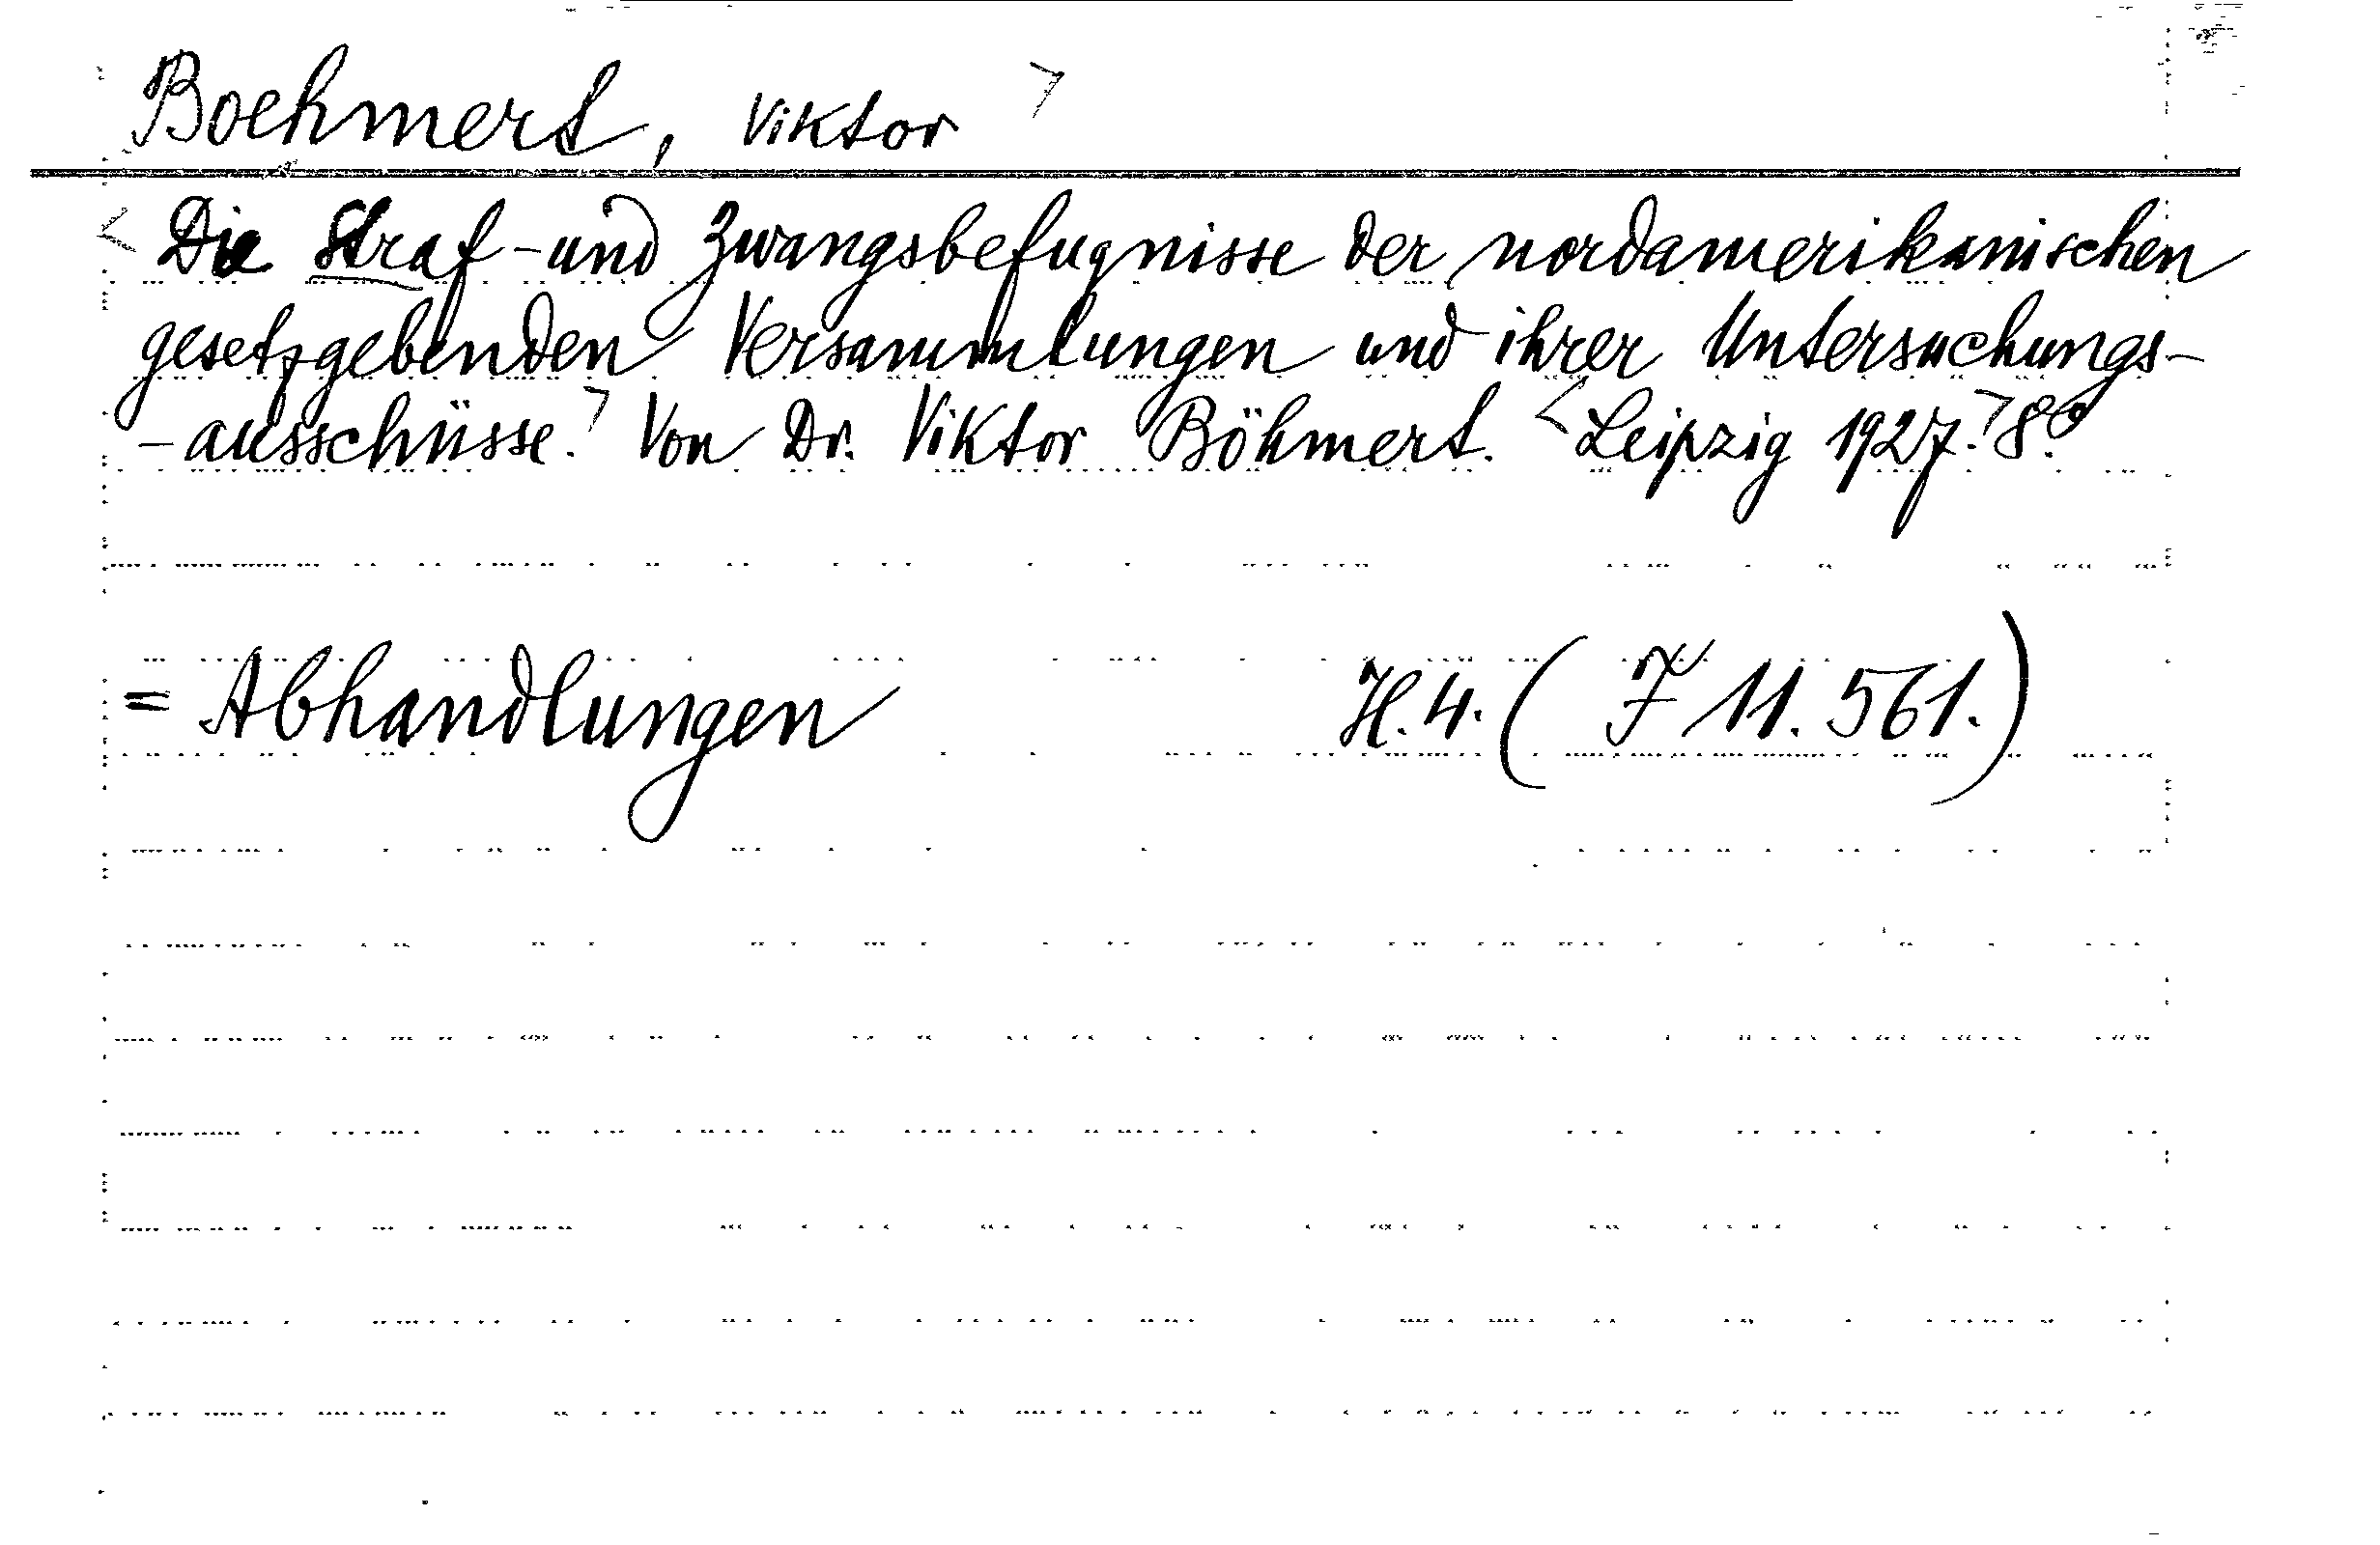 Boehmert, Viktor >
< Die Straf- und Zwangsbefugnisse der nordamerikanischen
gesetzgebenden Versammlungen und ihrer Untersuchungs-
-ausschüsse. > Von Dr. Viktor Böhmert. < Leipzig 1927. > 8°.
= Abhandlungen H. 4. ( F 11. 561. )